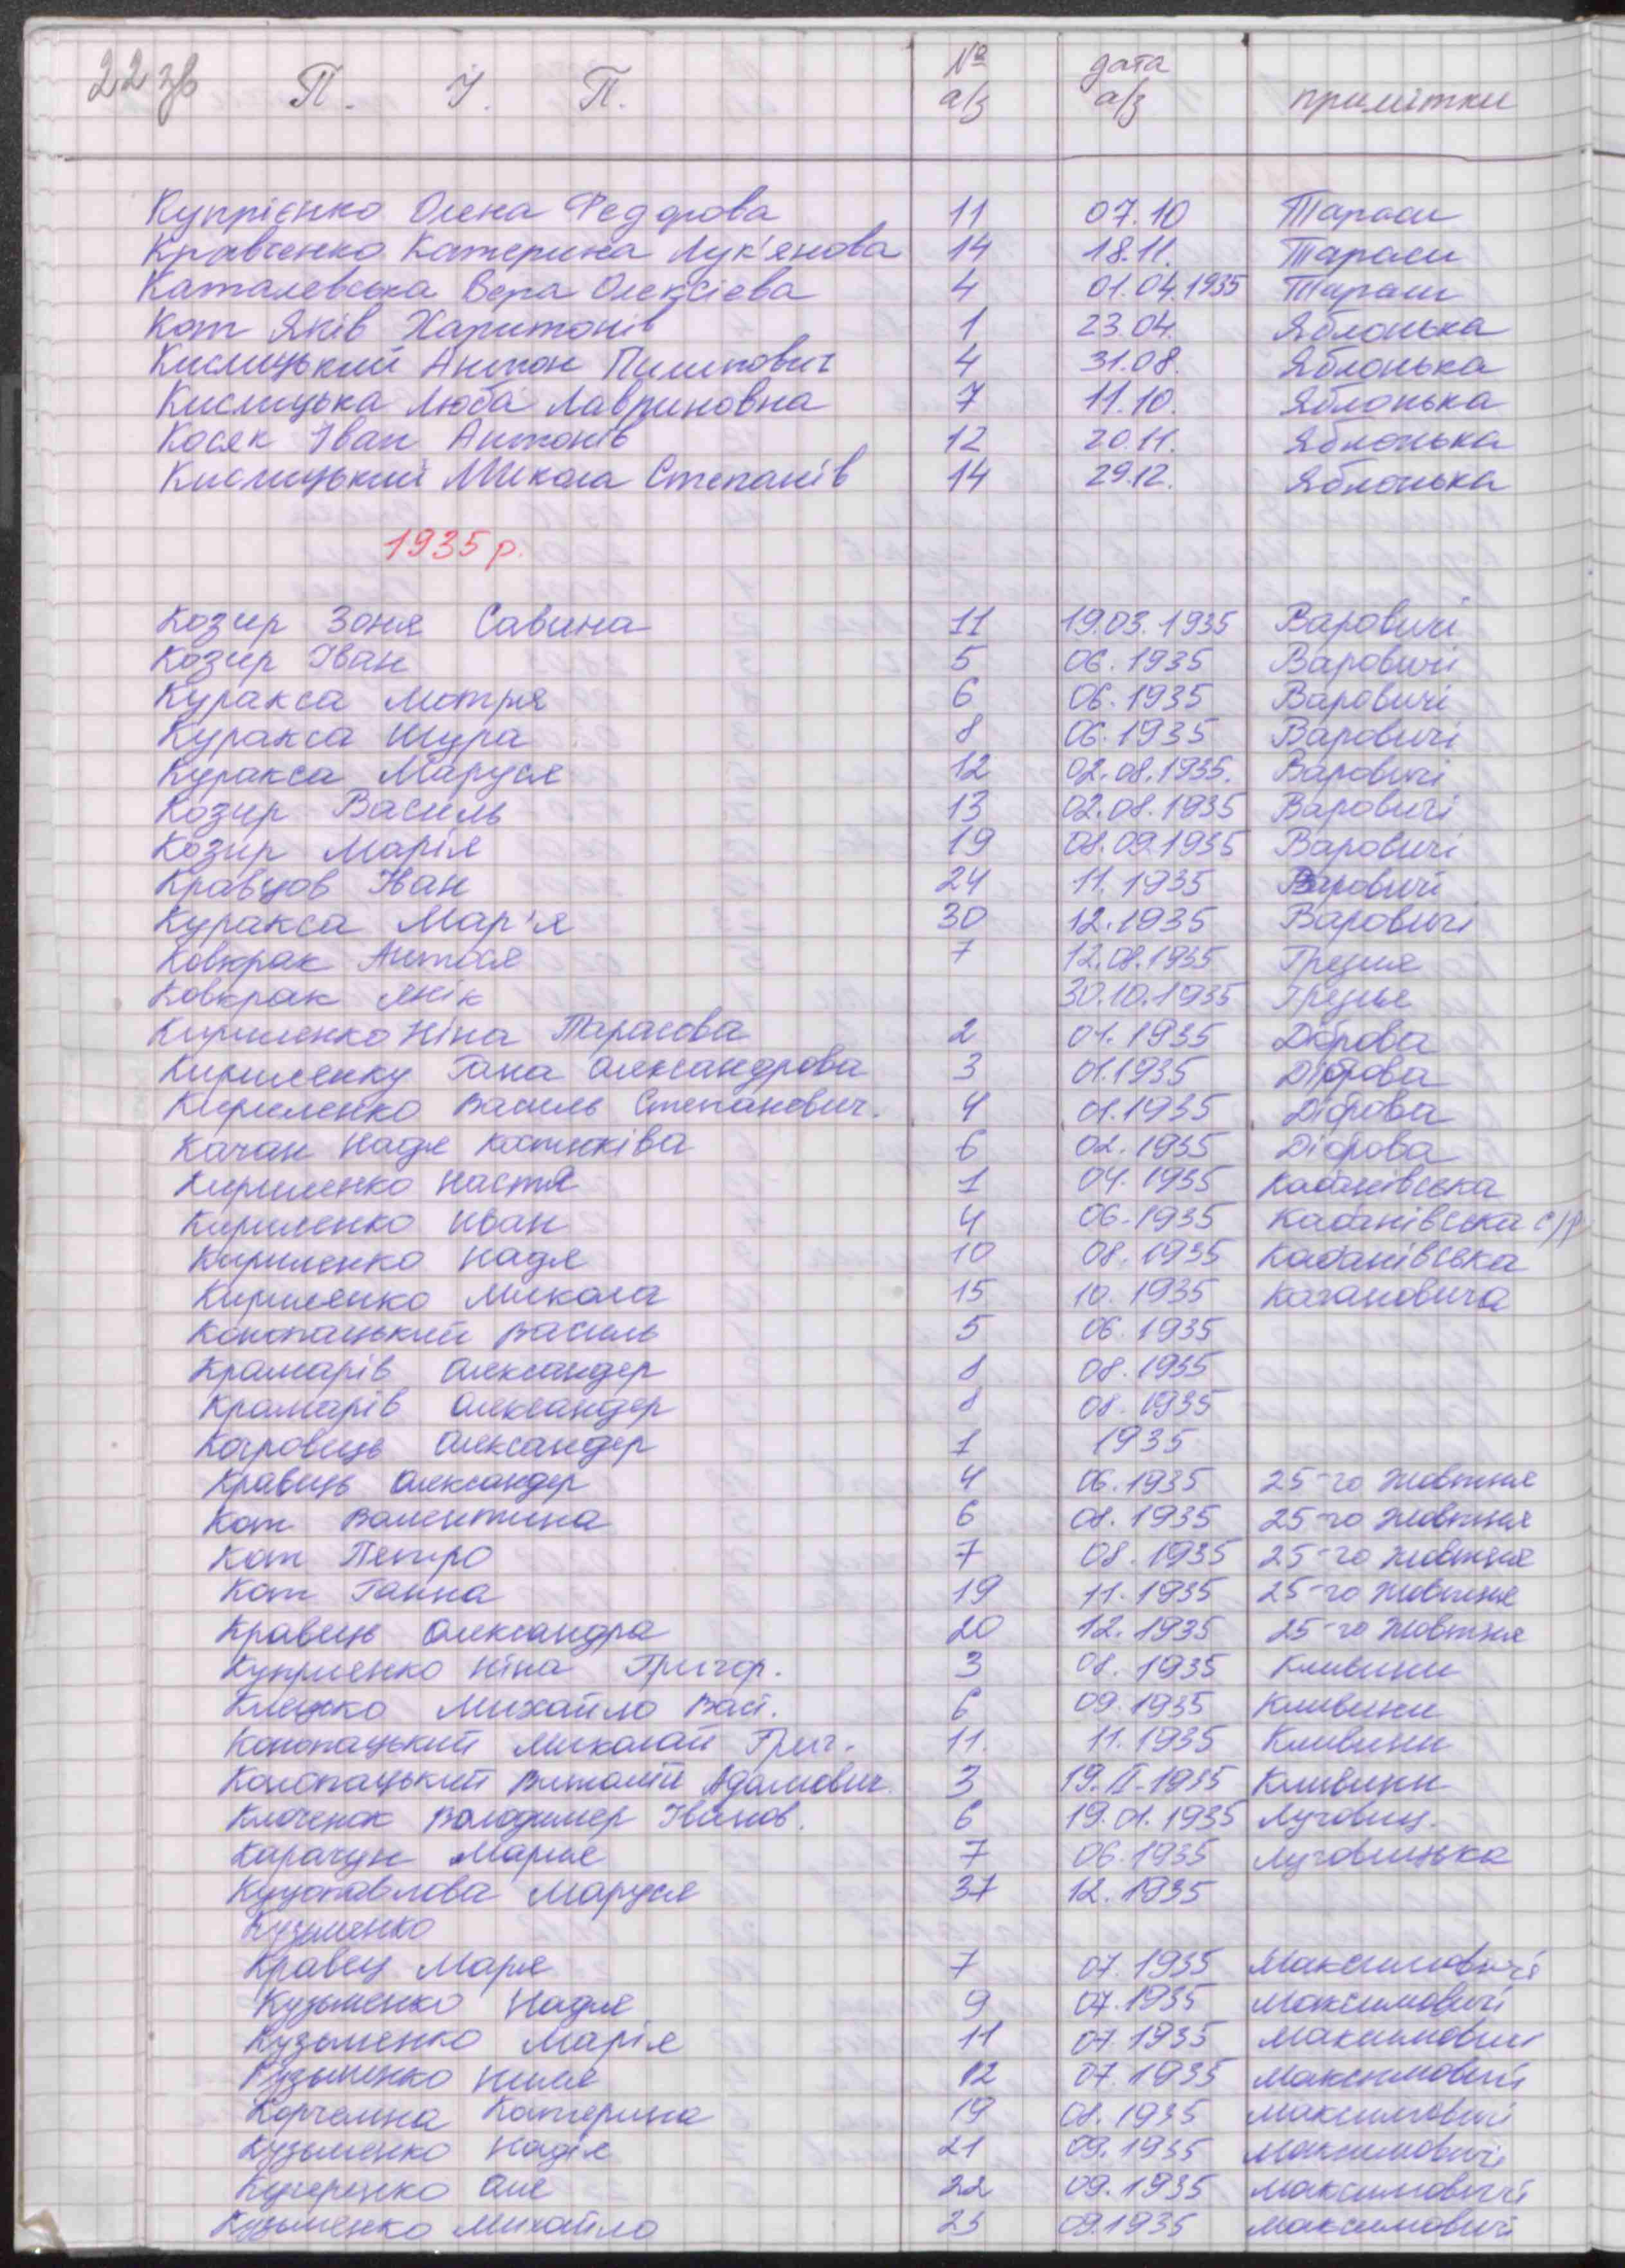 22 зв П. І. П. № а/з дата а/з примітки
Купрієнко Олена Федорова 11 07.10 Тараси
Кравченко Катерина Лук'янова 14 18.11. Тараси
Каталевська Вєра Олексієва 4 01.04.1935 Тараси
Кот Яків Харитонів 1 23.04. Яблонька
Кислицький Антон Пилипович 4 31.08. Яблонька
Кислицька Люба Лавриновна 7 11.10. Яблонька
Косяк Іван Антонів 12 20.11. Яблонька
Кислицький Микола Степанів 14 29.12. Яблонька
1935 р.
Козир Зоня Савина 11 19.03.1935 Варовичі
Козир Іван 5 06.1935 Варовичі
Куракса Мотря 6 06.1935 Варовичі
Куракса Шура 8 06.1935 Варовичі
Куракса Маруся 12 02.08.1935. Варовичі
Козир Василь 13 02.08.1935 Варовичі
Козир Марія 19 08.09.1935 Варовичі
Кравцов Іван 24 11.1935 Варовичі
Куракса Мар'я 30 12.1935 Варовичі
Ковкрак Антося 7 12.08.1935 Грезля
Ковкрак Янік 30.10.1935 Грезля
Кириленко Ніна Тарасова 2 01.1935 Діброва
Кириленку Гана Александрова 3 01.1935 Діброва
Кириленко Василь Степанович. 4 01.1935 Діброва
Качан Надя 6 02.1935 Діброва
Кириленко Настя 1 04.1935 Кабанівська
Кириленко Иван 4 06.1935 Кабанівська с/р
Кириленко Надя 10 08.1935 Кабанівська
Кириленко Микола 15 10.1935 Кагановича
Конопацький Василь 5 06.1935
Крамарів Александер 8 08.1935
Крамарів Александер 8 08.1935
Александер 1 1935
Кравець Александер 4 06.1935 25-го Жовтня
Кот Валентина 6 08.1935 25-го Жовтня
Кот Петро 7 08.1935 25-го Жовтня
Кот Ганна 19 11.1935 25-го Жовтня
Кравець Олександра 20 12.1935 25-го Жовтня
Куприенко Ніна Григор. 3 08.1935 Кливини
Михайло Вас. 6 09.1935 Кливини
Конопацький Миколай Григ. 11. 11.1935 Кливини
Конопацький Виталій Адамович. 3 19.II.1935 Кливини
Володимер Іванов. 6 19.01.1935 Луговиц.
Карачун Мария 7 06.1935 Луговицька
Маруся 37 12.1935
Кузменко
Кравец Маря 7 07.1935 Максимовичі
Кузьменко Надия 9 07.1935 Максимовичі
Кузьменко Марія 11 07.1935 Максимовичі
Кузьменко 12 07.1935 Максимовичі
Корчемна Катерина 19 08.1935 Максимовичі
Кузьменко Надія 21 09.1935 Максимовичі
Кучеренко Оля 22 09.1935 Максимовичі
Кузьменко Михайло 25 09.1935 Максимовичі